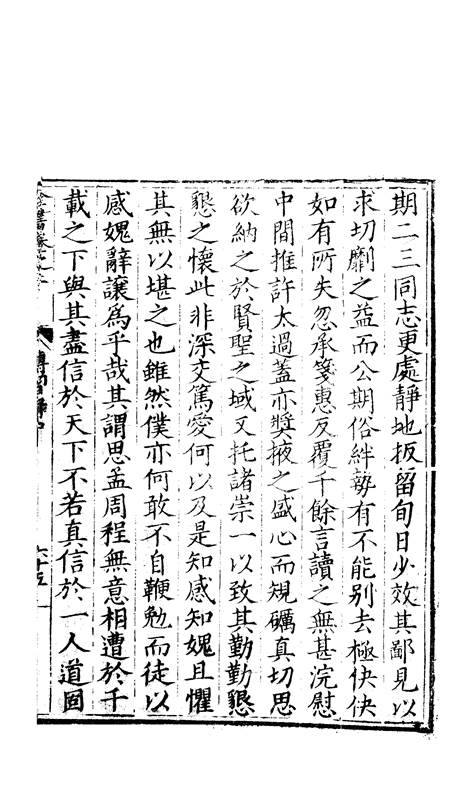 期二三同志更處靜地扳留旬日少效其鄙見以
求切劘之益而公期俗絆勢有不能别去極怏怏
如有所失忽承箋惠反覆千餘言讀之無甚浣慰
中間推許太過蓋亦奬掖之盛心而規礪真切思
欲納之於賢聖之域又托諸崇一以致其勤勤懇
懇之懷此非深交篤愛何以及是知感知媿且懼
其無以堪之也雖然僕亦何敢不自鞭勉而徒以
感媿辭讓爲乎哉其謂思孟周程無意相遭於千
載之下與其盡信於天下不若真信於一人道固
六十五